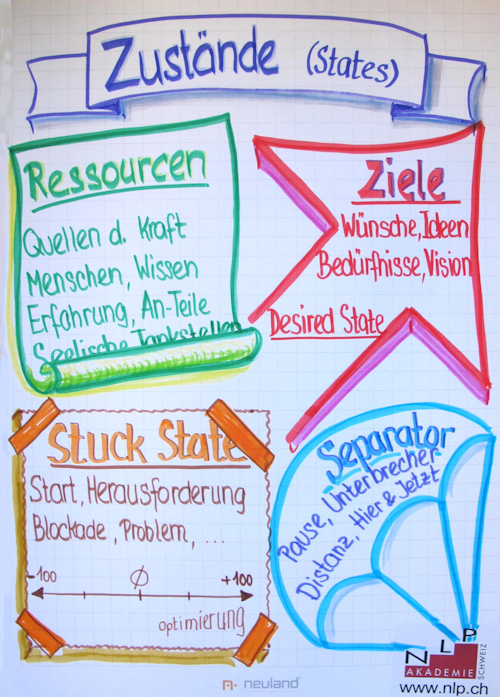 Zustände (States)
Ressourcen
Quellen d. Kraft
Menschen, Wissen
Erfahrung, An-Teile
Seelische Tankstellen
Ziele
Wünsche, Ideen
Bedürfnisse, Vision
Desired State
Stuck State
Start, Herausforderung
Blockade, Problem, ...
-100 Ø +100
optimierung
Separator
Pause, Unterbrecher
Distanz, Hier & Jetzt
NLP
AKADEMIE
SCHWEIZ
www.nlp.ch
neuland